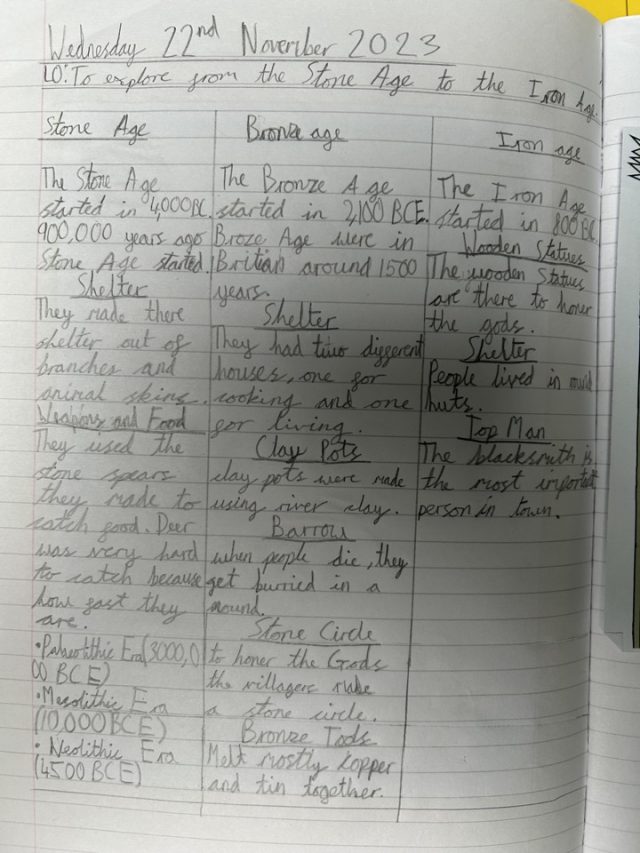 Wednesday 22nd November 2023
LO: To explore from the Stone Age to the Iron Age.
Stone Age
The Stone Age
started in 4,000BC.
900,000 years ago
Stone Age started.
Shelter
They made there
shelter out of
branches and
animal skins.
Weapons and Food
They used the
stone spears
they made to
catch food. Deer
was very hard
to catch because
how fast they
are.
• Paleolithic Era (3000,0
00 BCE)
• Mesolithic Era
(10,000 BCE)
• Neolithic Era
(4500 BCE)
Bronze age
The Bronze Age
started in 2,100 BCE.
Broze Age were in
Britian around 1500
years.
Shelter
They had two different
houses, one for
cooking and one
for living.
Clay Pots
clay pots were made
using river clay.
Barrow
when people die, they
get burried in a
mound.
Stone Circle
to honer the Gods
the villagers make
a stone circle.
Bronze Tools
Melt mostly copper
and tin together.
Iron age
The Iron Age
started in 800BC
Wooden Statues
The wooden statues
are there to honer
the gods.
Shelter
People lived in mud
huts.
Top Man
The blacksmith is
the most important
person in town.